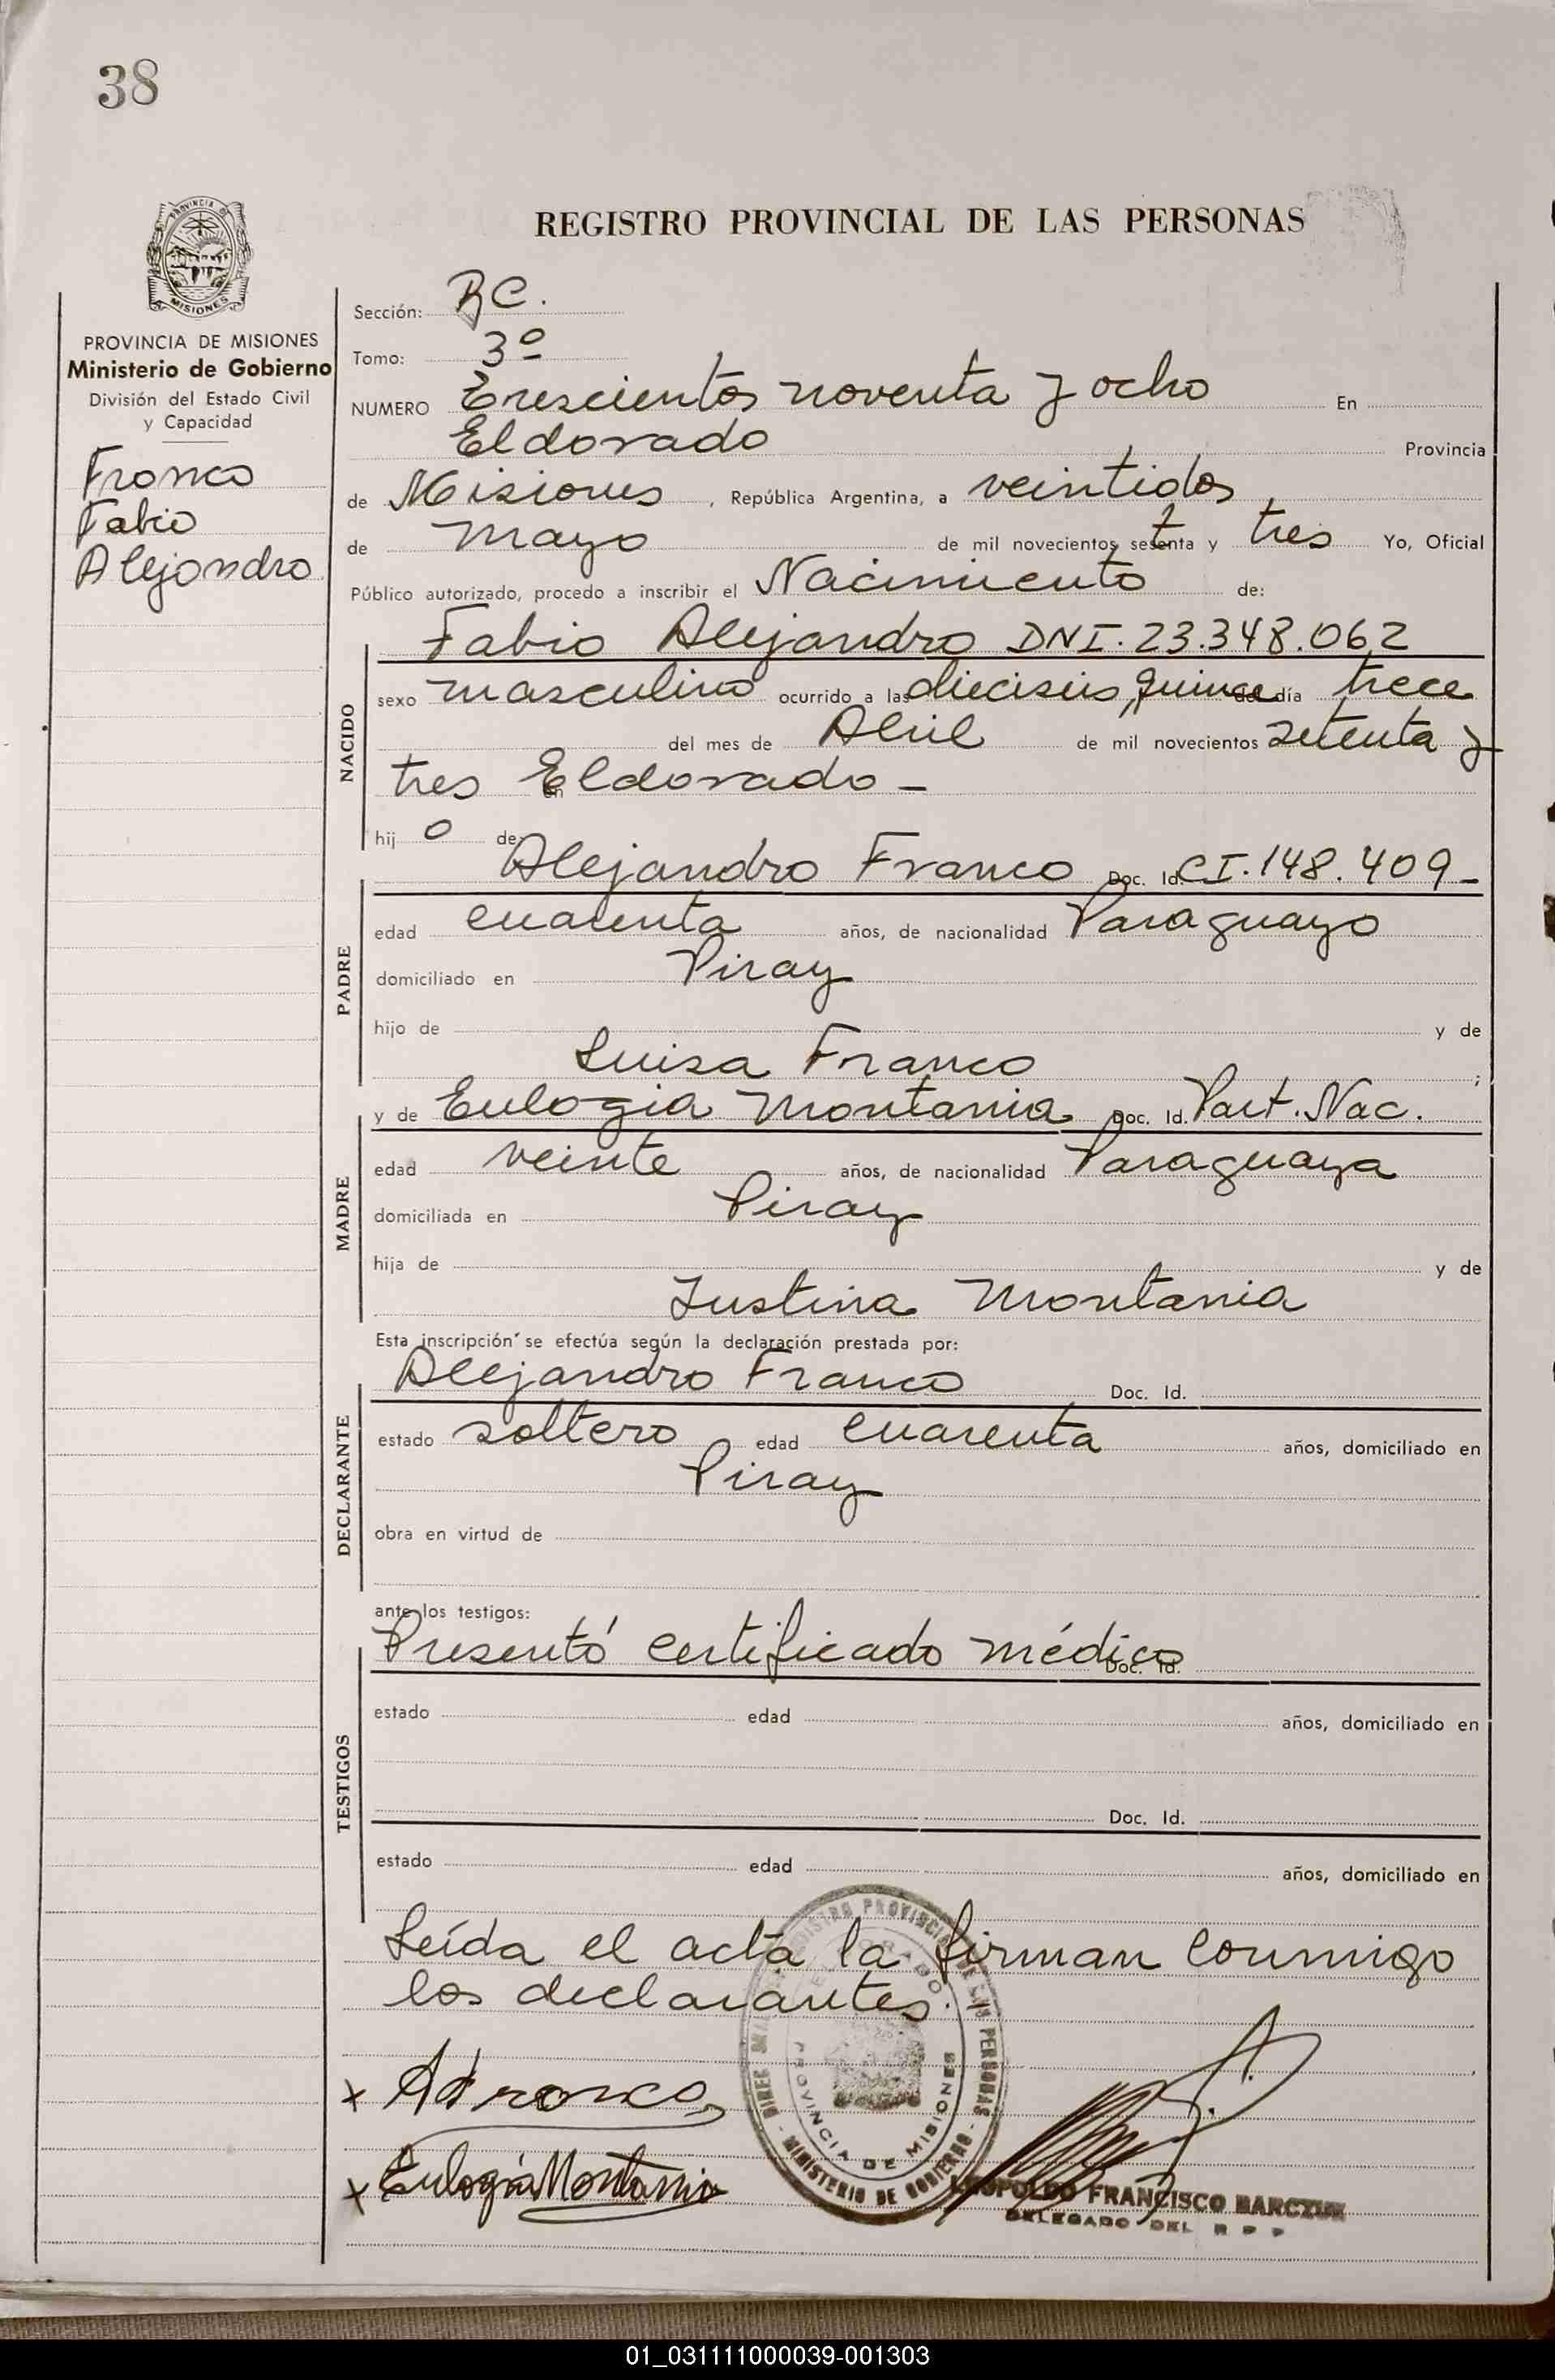 38
REGISTRO PROVINCIAL DE LAS PERSONAS
PROVINCIA DE MISIONES
Ministerio de Gobierno
División del Estado Civil
y Capacidad
Franco
Fabio
Alejandro
Sección: BC.
Tomo: 3º
NUMERO Trescientos noventa y ocho En
Eldorado Provincia
de Misiones, República Argentina, a veintidos,
de Mayo de mil novecientos setenta y tres Yo, Oficial
Público autorizado, procedo a inscribir el Nacimiento de:
NACIDO
Fabio Alejandro DNI. 23.348.062
sexo masculino ocurrido a las dieciseis, quince del día trece
del mes de Abril de mil novecientos setenta y
tres en Eldorado -
hij o de: Alejandro Franco Doc. Id. CI. 148.409-
PADRE
edad cuarenta años, de nacionalidad Paraguayo
domiciliado en Piray
hijo de y de
Luisa Franco ;
y de Eulogia Montania Doc. Id. Part. Nac.
MADRE
edad veinte años, de nacionalidad Paraguaya
domiciliada en Piray
hija de y de
Justina Montania
Esta inscripción se efectúa según la declaración prestada por:
Alejandro Franco Doc. Id.
DECLARANTE
estado soltero edad cuarenta años, domiciliado en
Piray
obra en virtud de
ante los testigos:
Presentó certificado médico Doc. Id.
TESTIGOS
estado edad años, domiciliado en
Doc. Id.
estado edad años, domiciliado en
Leída el acta la firman conmigo
los declarantes.
x AFranco
x Eulogia Montania
PROVINCIA DE MISIONES
MINISTERIO DE GOBIERNO
LEOPOLDO FRANCISCO BARCZUK
DELEGADO DEL R P P
01_031111000039-001303